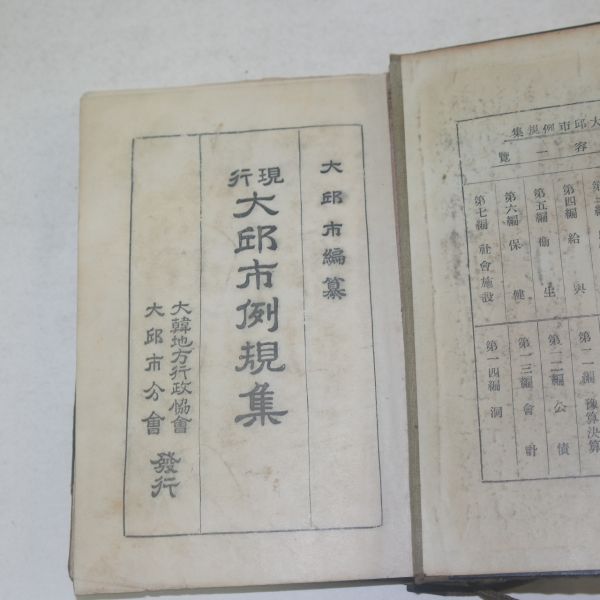 大邱市編纂
現行
大邱市例規集
大韓地方行政協會
大邱市分會
發行
大邱市例規集
容一覽
第四編 給與
第五編 衛生
第六編 保健
第七編 社會施設
第一一編 豫算決算
第一二編 公債
第一三編 會計
第一四編 洞